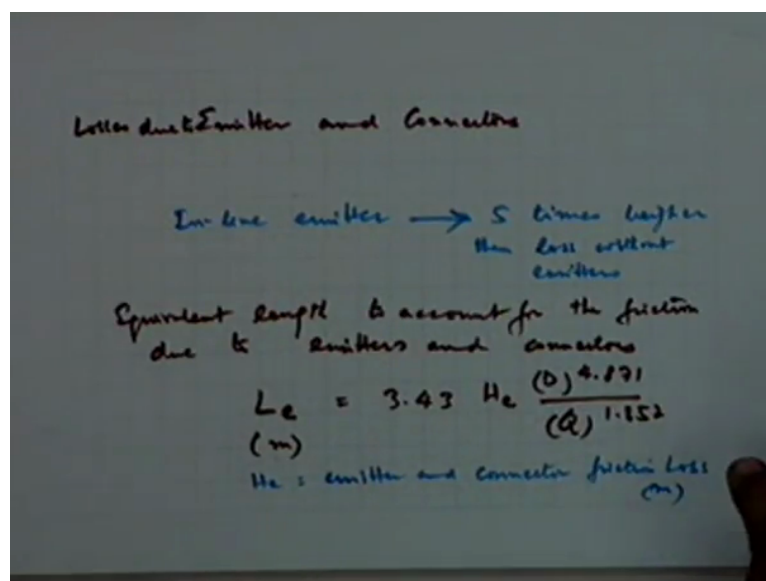 Losses due to Emitter and Connectors
In-line emitter → 5 times heigher
then loss without
emitters
Equivalent length to account for the friction
due to emitters and connectors
Le = 3.43 He (D)^4.871 / (Q)^1.852
(m)
He = emitter and connector friction Loss
(m)